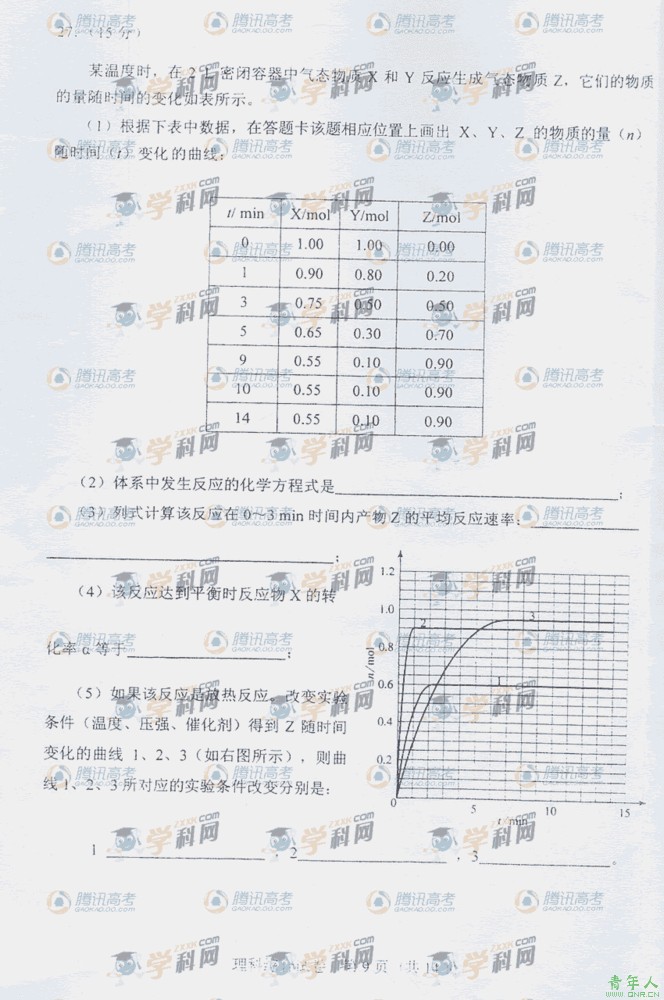 27.（15 分）
某温度时，在 2 L 密闭容器中气态物质 X 和 Y 反应生成气态物质 Z，它们的物质
的量随时间的变化如表所示。
（1）根据下表中数据，在答题卡该题相应位置上画出 X、Y、Z 的物质的量（n）
随时间（t）变化的曲线：
t/ min X/mol Y/mol Z/mol
0 1.00 1.00 0.00
1 0.90 0.80 0.20
3 0.75 0.50 0.50
5 0.65 0.30 0.70
9 0.55 0.10 0.90
10 0.55 0.10 0.90
14 0.55 0.10 0.90
（2）体系中发生反应的化学方程式是____________；
（3）列式计算该反应在 0～3 min 时间内产物 Z 的平均反应速率：____________
____________；
（4）该反应达到平衡时反应物 X 的转
化率 α 等于____________；
（5）如果该反应是放热反应。改变实验
条件（温度、压强、催化剂）得到 Z 随时间
变化的曲线 1、2、3（如右图所示），则曲
线 1、2、3 所对应的实验条件改变分别是：
1 ____________ ，2____________ ，3____________。
1.2
1.0
0.8
0.6
0.4
0.2
0
n/mol
2
3
1
5
10
15
t min
腾讯高考
GAOKAO.QQ.COM
学科网
ZXXK.COM
青年人
WWW.QNR.CN